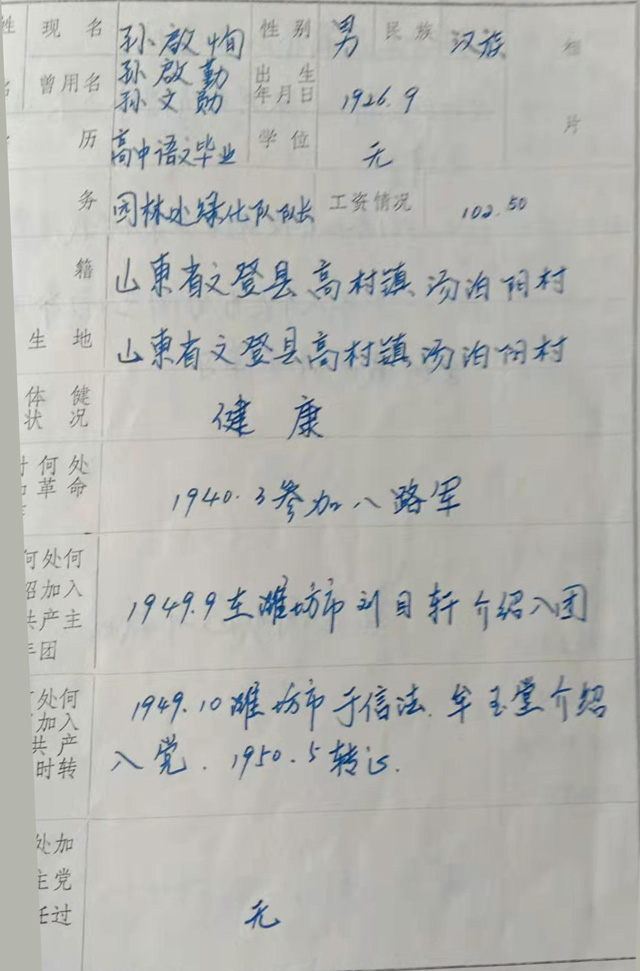 姓 现 名 孙启恂 性 别 男 民 族 汉族 相
名 曾用名 孙启勤 出 生
孙文勋 年月日 1926.9 片
历 高中语文毕业 学 位 无
务 园林处绿化队队长 工资情况 102.50
籍 山東省文登县高村镇汤泊阳村
生 地 山東省文登县高村镇汤泊阳村
体 健
状 况 健 康
时 何 处
加 革 命 1940.3参加八路军
何 处 何
绍 加 入 1949.9在潍坊市刘目轩介绍入团
共 产 主
年 团
处 何 1949.10潍坊市于信法.牟玉堂介绍
加 入
共 产 入党.1950.5转正.
时 转
处 加
主 党
任 过 无